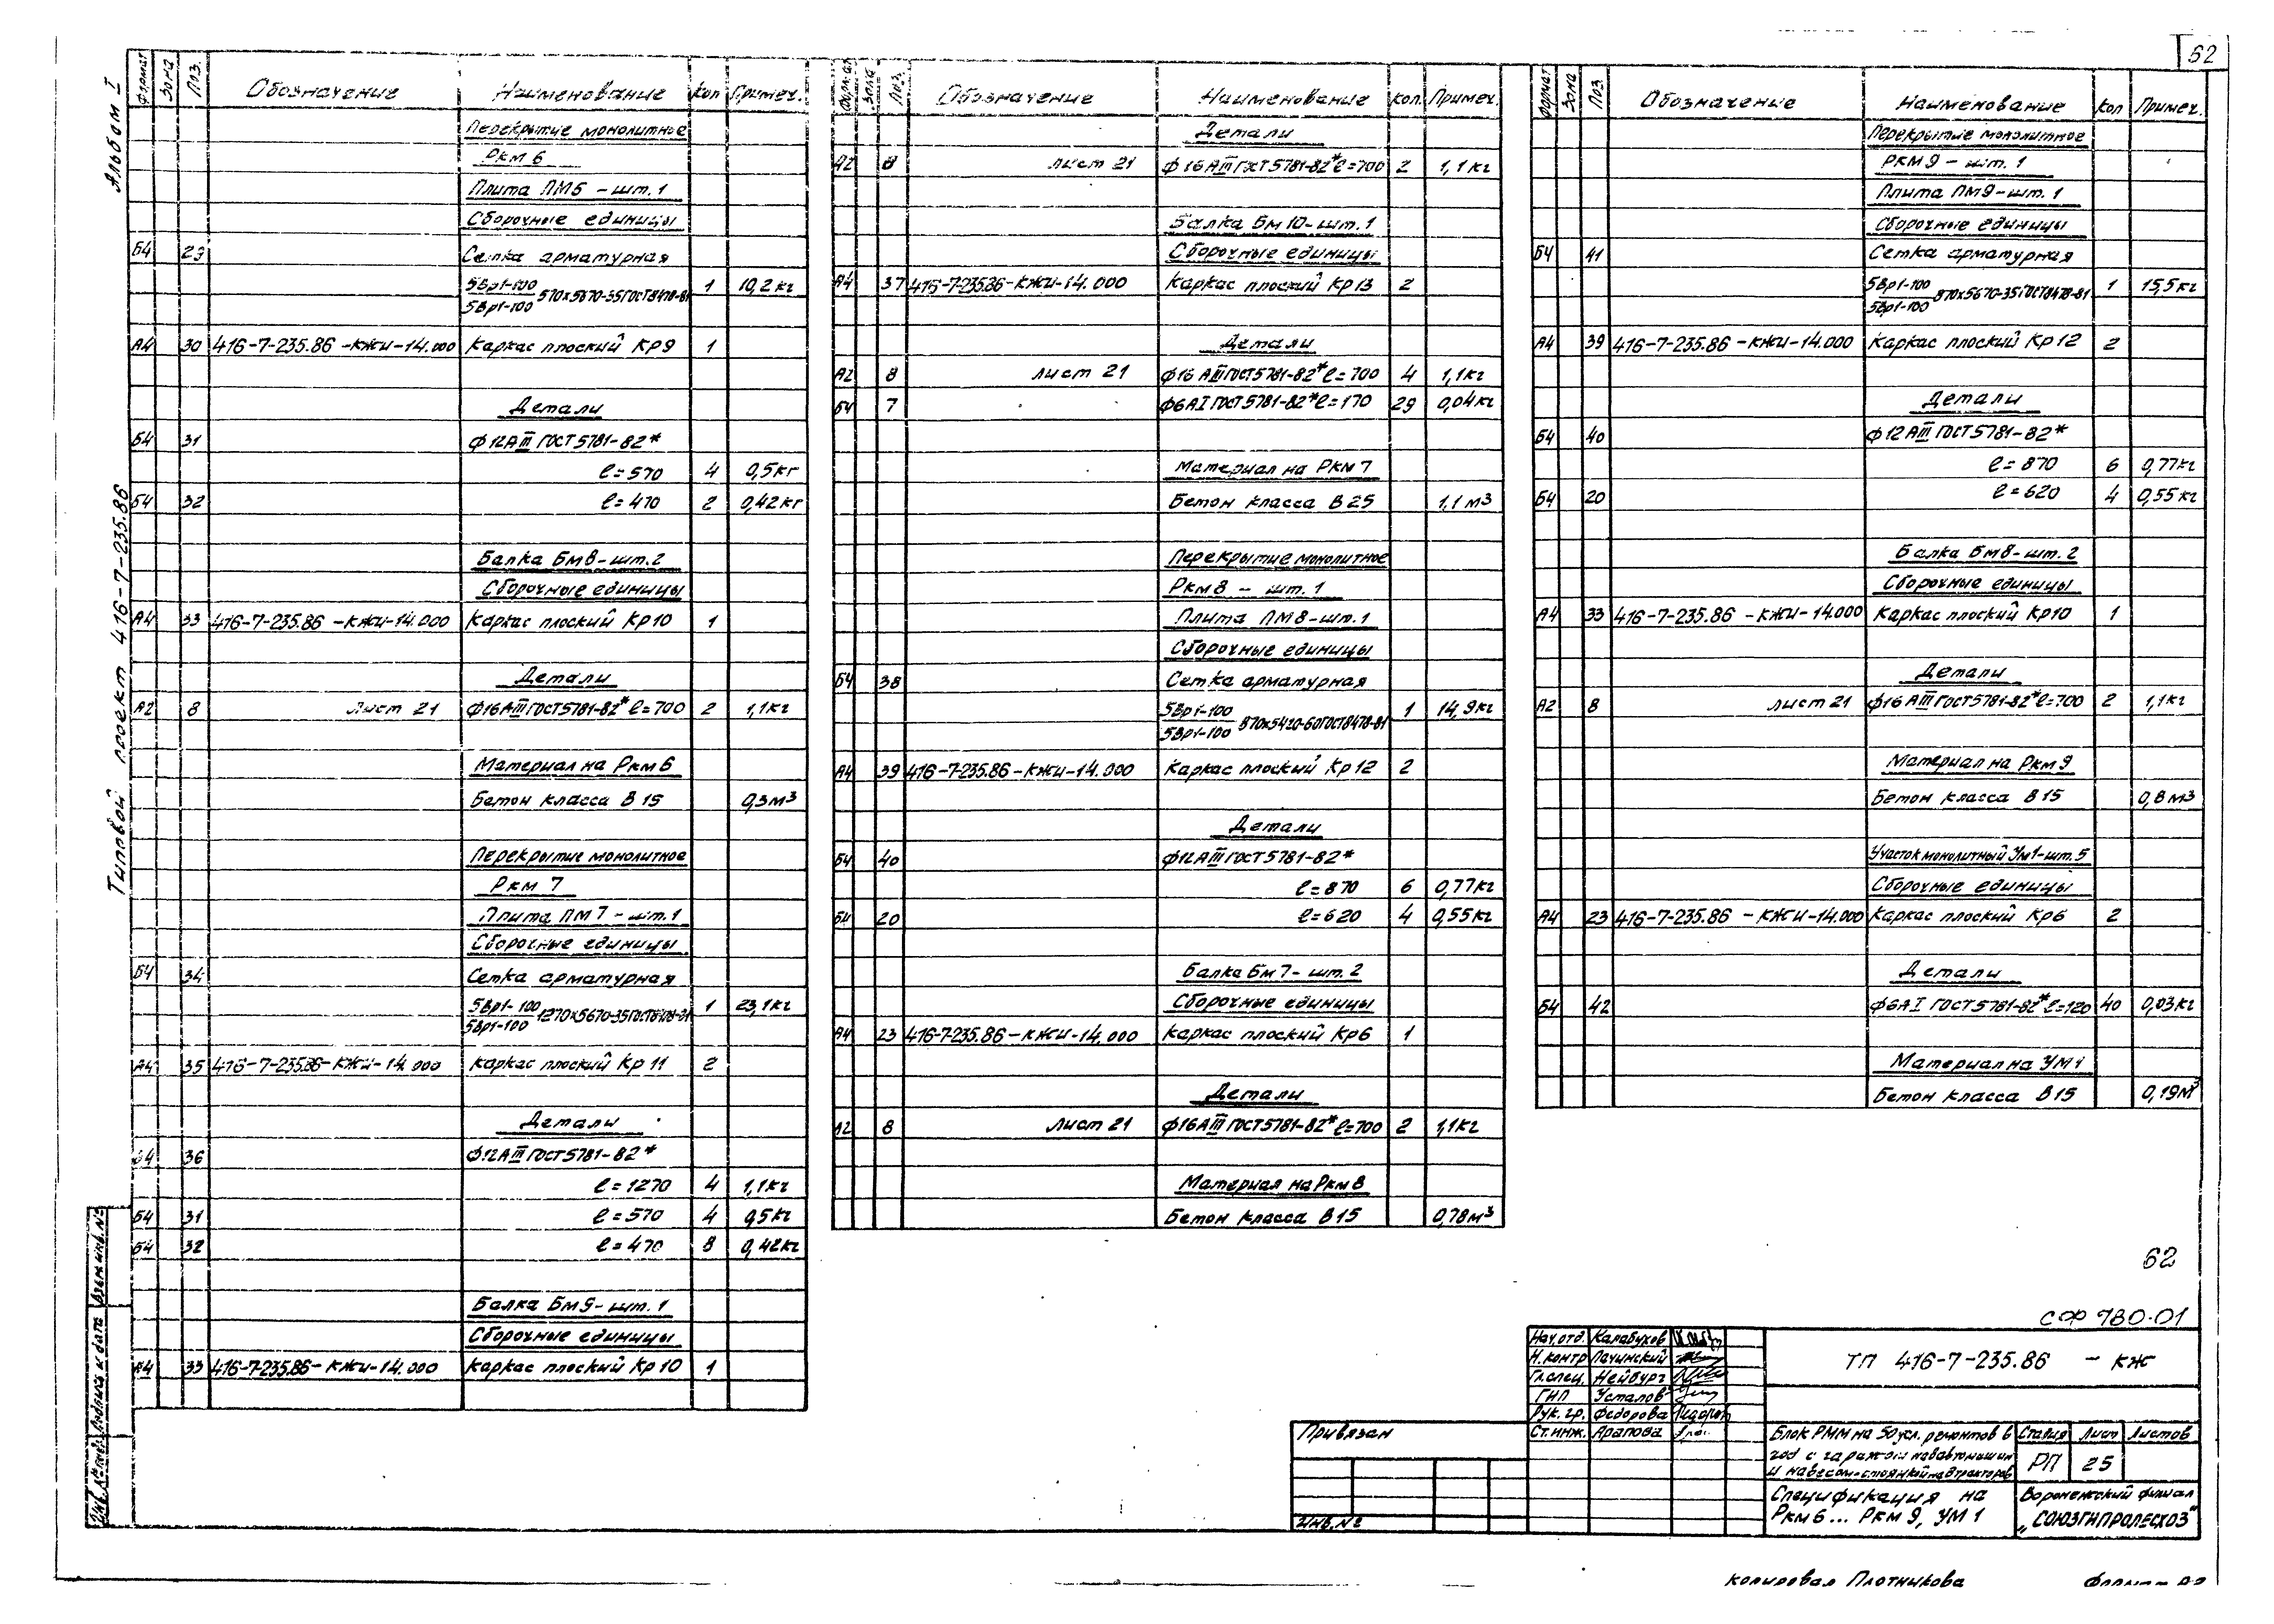 62
Альбом I
Типовой проект 416-7-235.86
Формат Зона Поз. Обозначение Наименование Кол Примеч.
Перекрытие монолитное
Ркм 6
Плита ПМ6 - шт. 1
Сборочные единицы
Б4 23 Сетка арматурная
5Вр1-100/5Вр1-100 570х5670-35 ГОСТ8478-81 1 10,2 кг
А4 30 416-7-235.86 -КЖИ-14.000 Каркас плоский Кр9 1
Детали
Б4 31 ф12АIII ГОСТ5781-82*
ℓ=570 4 0,5кг
Б4 32 ℓ=470 2 0,42кг
Балка Бм8-шт.2
Сборочные единицы
А4 33 416-7-235.86 -КЖИ-14.000 Каркас плоский Кр10 1
Детали
А2 8 Лист 21 ф16АIII ГОСТ5781-82* ℓ=700 2 1,1кг
Материал на Ркм6
Бетон класса В15 0,3м³
Перекрытие монолитное
Ркм 7
Плита ПМ7-шт.1
Сборочные единицы
Б4 34 Сетка арматурная
5Вр1-100/5Вр1-100 1270х5670-35 ГОСТ8478-81 1 23,1кг
А4 35 416-7-235.86-КЖИ-14.000 Каркас плоский Кр11 2
Детали
Б4 36 ф12АIII ГОСТ5781-82*
ℓ=1270 4 1,1кг
Б4 31 ℓ=570 4 0,5кг
Б4 32 ℓ=470 8 0,42кг
Балка Бм9-шт.1
Сборочные единицы
А4 33 416-7-235.86-КЖИ-14.000 Каркас плоский Кр10 1
Формат Зона Поз. Обозначение Наименование Кол. Примеч.
Детали
А2 8 Лист 21 ф16АIII ГОСТ5781-82* ℓ=700 2 1,1кг
Балка Бм10-шт.1
Сборочные единицы
А4 37 416-7-235.86-КЖИ-14.000 Каркас плоский Кр13 2
Детали
А2 8 Лист 21 ф16АIII ГОСТ5781-82* ℓ=700 4 1,1кг
Б4 7 ф6АI ГОСТ5781-82* ℓ=170 29 0,04кг
Материал на Ркм7
Бетон класса В25 1,1м³
Перекрытие монолитное
Ркм8 - шт.1
Плита ПМ8-шт.1
Сборочные единицы
Б4 38 Сетка арматурная
5Вр1-100/5Вр1-100 870х5420-60 ГОСТ8478-81 1 14,9кг
А4 39 416-7-235.86-КЖИ-14.000 Каркас плоский Кр12 2
Детали
Б4 40 ф12АIII ГОСТ5781-82*
ℓ=870 6 0,77кг
Б4 20 ℓ=620 4 0,55кг
Балка Бм7-шт.2
Сборочные единицы
А4 23 416-7-235.86-КЖИ-14.000 Каркас плоский Кр6 1
Детали
А2 8 Лист 21 ф16АIII ГОСТ5781-82* ℓ=700 2 1,1кг
Материал на Ркм8
Бетон класса В15 0,78м³
Формат Зона Поз Обозначение Наименование Кол Примеч.
Перекрытие монолитное
РКМ9 - шт. 1
Плита ПМ9-шт.1
Сборочные единицы
Б4 41 Сетка арматурная
5Вр1-100/5Вр1-100 870х5670-35 ГОСТ8478-81 1 15,5кг
А4 39 416-7-235.86 -КЖИ-14.000 Каркас плоский Кр12 2
Детали
Б4 40 ф12АIII ГОСТ5781-82*
ℓ=870 6 0,77кг
Б4 20 ℓ=620 4 0,55кг
Балка Бм8-шт.2
Сборочные единицы
А4 33 416-7-235.86 -КЖИ-14.000 Каркас плоский Кр10 1
Детали
А2 8 лист 21 ф16АIII ГОСТ5781-82* ℓ=700 2 1,1кг
Материал на Ркм9
Бетон класса В15 0,8м³
Участок монолитный Ум1-шт.5
Сборочные единицы
А4 23 416-7-235.86 -КЖИ-14.000 Каркас плоский Кр6 2
Детали
Б4 42 ф6АI ГОСТ5781-82* ℓ=120 40 0,03кг
Материал на УМ1
Бетон класса В15 0,19м³
62
СФ 780-01
Нач.отд. Калабухов
Н.контр Лачинский
Гл.спец. Нейбург
ГИП Усталов
Рук.гр. Федорова
Ст.инж. Арапова
ТП 416-7-235.86 - КЖ
Блок РММ на 50 усл. ремонтов в
год с гаражом на автомашин
и навесом-стоянкой на 8 тракторов
Стадия Лист Листов
РП 25
Спецификация на
Ркм6... Ркм9, УМ1
Воронежский филиал
„СОЮЗГИПРОЛЕСХОЗ"
Привязан
Инв.№
Взам.инв.№
Подпись и дата
Инв.№подл.
Копировал Плотникова
Формат А2